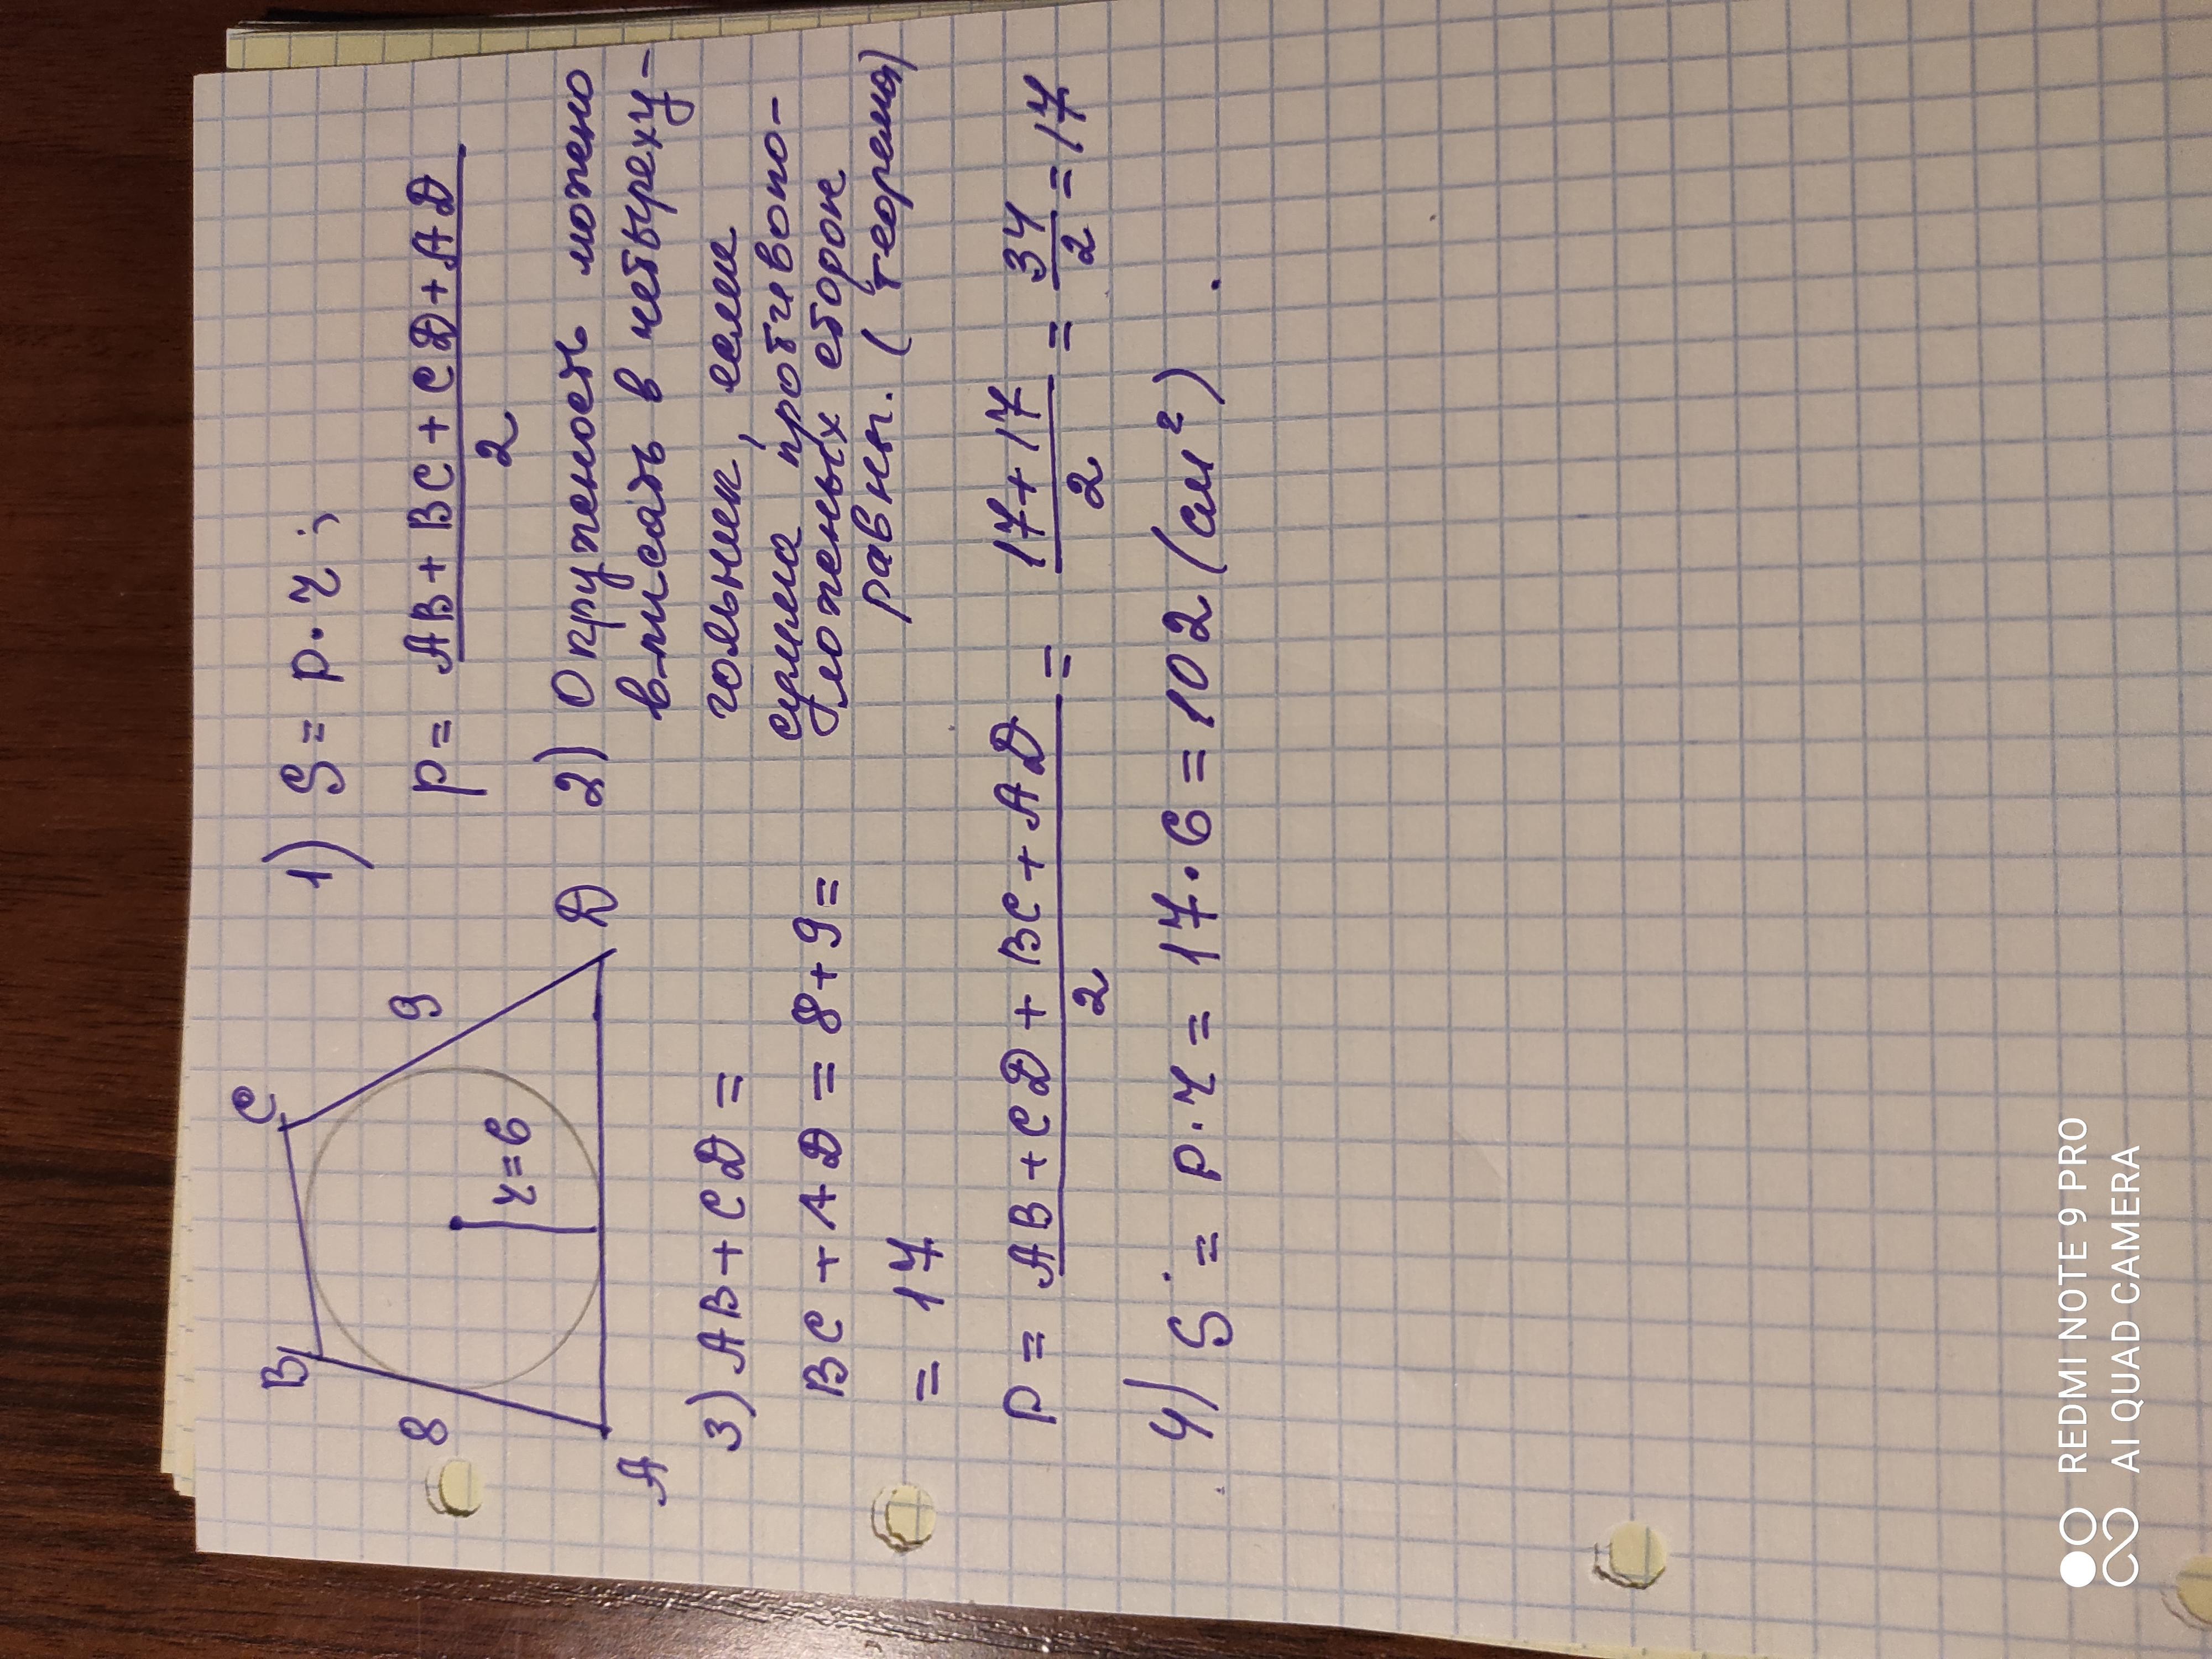 B
C
8
9
r=6
A
D
1) S = p·r ;
p = AB + BC + CD + AD
2
2) Окружность можно
вписать в четыреху-
гольник, если
сумма противопо-
ложных сторон
равны. (теорема)
3) AB + CD =
BC + AD = 8+9 =
= 17
p = AB + CD + BC + AD / 2 = 17+17 / 2 = 34 / 2 = 17
4) S = p·r = 17·6 = 102 (см²).
REDMI NOTE 9 PRO
AI QUAD CAMERA